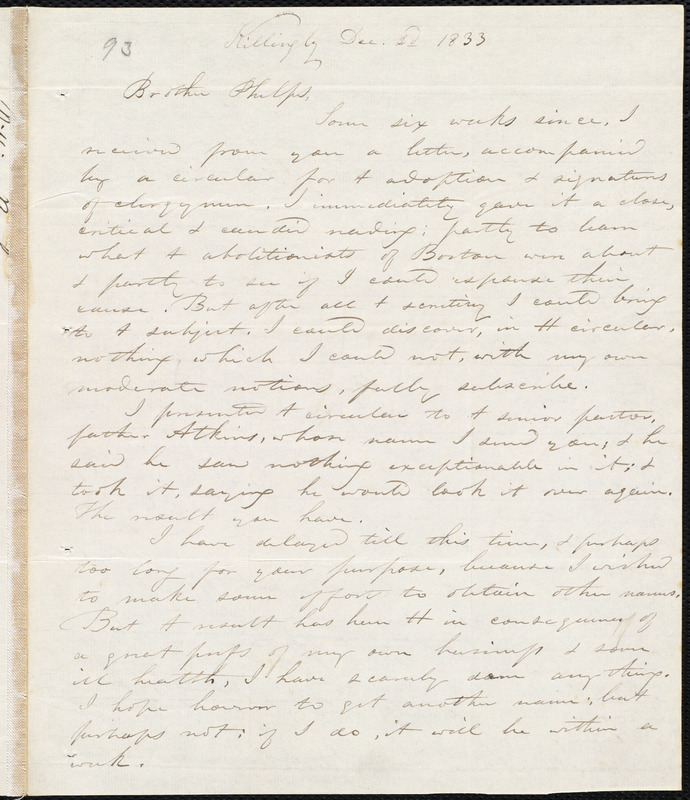 93
Killingly Dec. 2d 1833
Brother Phelps,
Some six weeks since, I
received from you a letter, accompanied
by a circular for + adoption & signatures
of clergymen. I immediately gave it a close,
critical & candid reading; partly to learn
what + abolitionists of Boston were about
& partly to see if I could espouse their
cause. But after all + scrutiny I could bring
to + subject, I could discover, in tt circular,
nothing which I could not, with my own
moderate notions, fully subscribe.
I presented + circular to + senior pastor,
father Atkins, whose name I send you; & he
said he saw nothing exceptionable in it; &
took it, saying he would look it over again.
The result you have.
I have delayed till this time, & perhaps
too long for your purpose, because I wished
to make some effort to obtain other names.
But + result has been tt in consequence of
a great press of my own business & some
ill health, I have scarcely done anything.
I hope however to get another name; but
perhaps not; if I do, it will be within a
week.